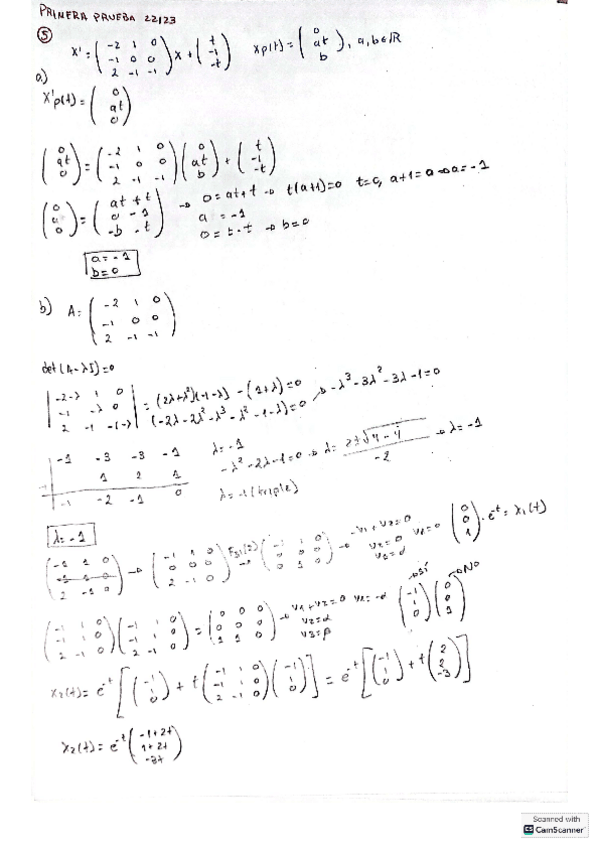 PRIMERA PRUEBA 22/23
⑤ X' = (-2 1 0 / -1 0 0 / 2 -1 -1) X + (t / -1 / -t) Xp(t) = (0 / at / b), a, b ∈ ℝ
a)
X'p(t) = (0 / at / 0)
(0 / at / 0) = (-2 1 0 / -1 0 0 / 2 -1 -1) (0 / at / b) + (t / -1 / -t)
(0 / a / 0) = (at + t / 0 - 1 / -b - t) → 0 = at + t → t(a+1) = 0 t = 0, a+1 = a → a = -1
a = -1
0 = t - t → b = 0
a = -1
b = 0
b) A = (-2 1 0 / -1 0 0 / 2 -1 -1)
det(A-λI) = 0
|-2-λ 1 0 / -1 -λ 0 / 2 -1 -(-λ)| = (2λ+λ²)(-1-λ) - (1+λ) = 0
(-2λ-2λ²-λ³-λ²-1-λ) = 0 → -λ³-3λ²-3λ-1 = 0
-1 -3 -3 -1
1 2 1
-1 -2 -1 0
λ = -1
-λ²-2λ-1 = 0 → λ = 2±√4-4 / -2 → λ = -1
λ = -1 (triple)
λ = -1
(-1 1 0 / -1 1 0 / 2 -1 0) → (-1 1 0 / 0 0 0 / 2 -1 0) → -v1 + v2 = 0 (0 / 0 / 1) · e^-t = X1(t)
(-1 1 0 / -1 1 0 / 2 -1 0) (-1 1 0 / -1 1 0 / 2 -1 0) = (0 0 0 / 0 0 0 / 1 1 0) → v1 + v2 = 0 v1 = -α
v2 = α
v3 = β
(-1 / 1 / 0) → Sí (0 / 0 / 1) → No
X2(t) = e^-t [(-1 / 1 / 0) + t (-1 1 0 / -1 1 0 / 2 -1 0) (-1 / 1 / 0)] = e^-t [(-1 / 1 / 0) + t (2 / 2 / -3)]
X2(t) = e^-t (-1+2t / 1+2t / -3t)
Scanned with
CS CamScanner